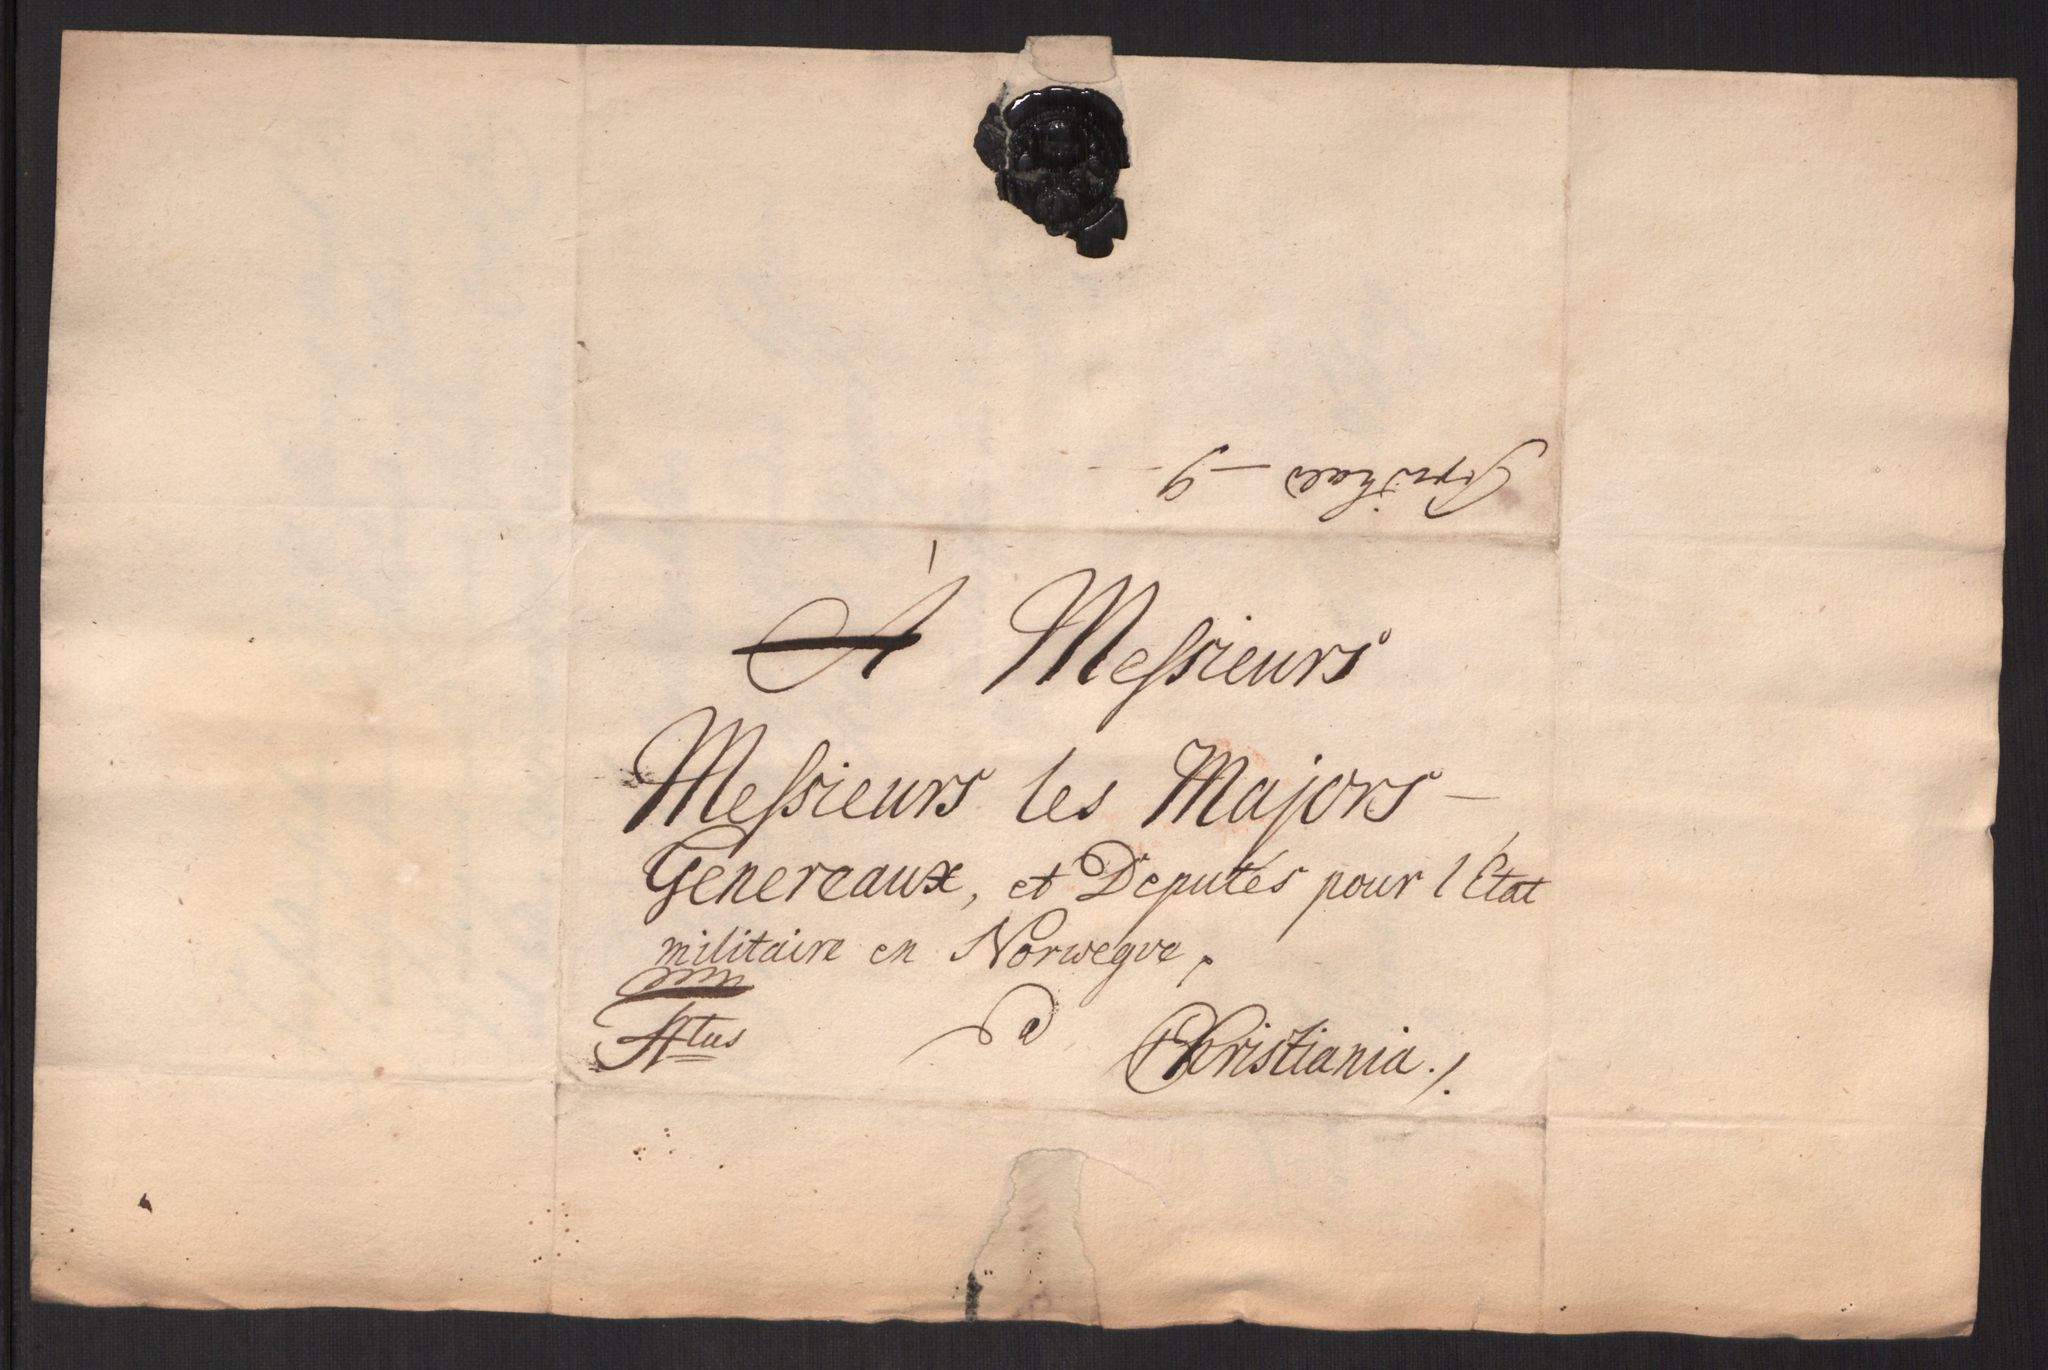 À Messieurs
Messieurs les Majors —
Genereaux, et Deputés pour l'Etat
militaire en Norwegve.
a Christiania ./.